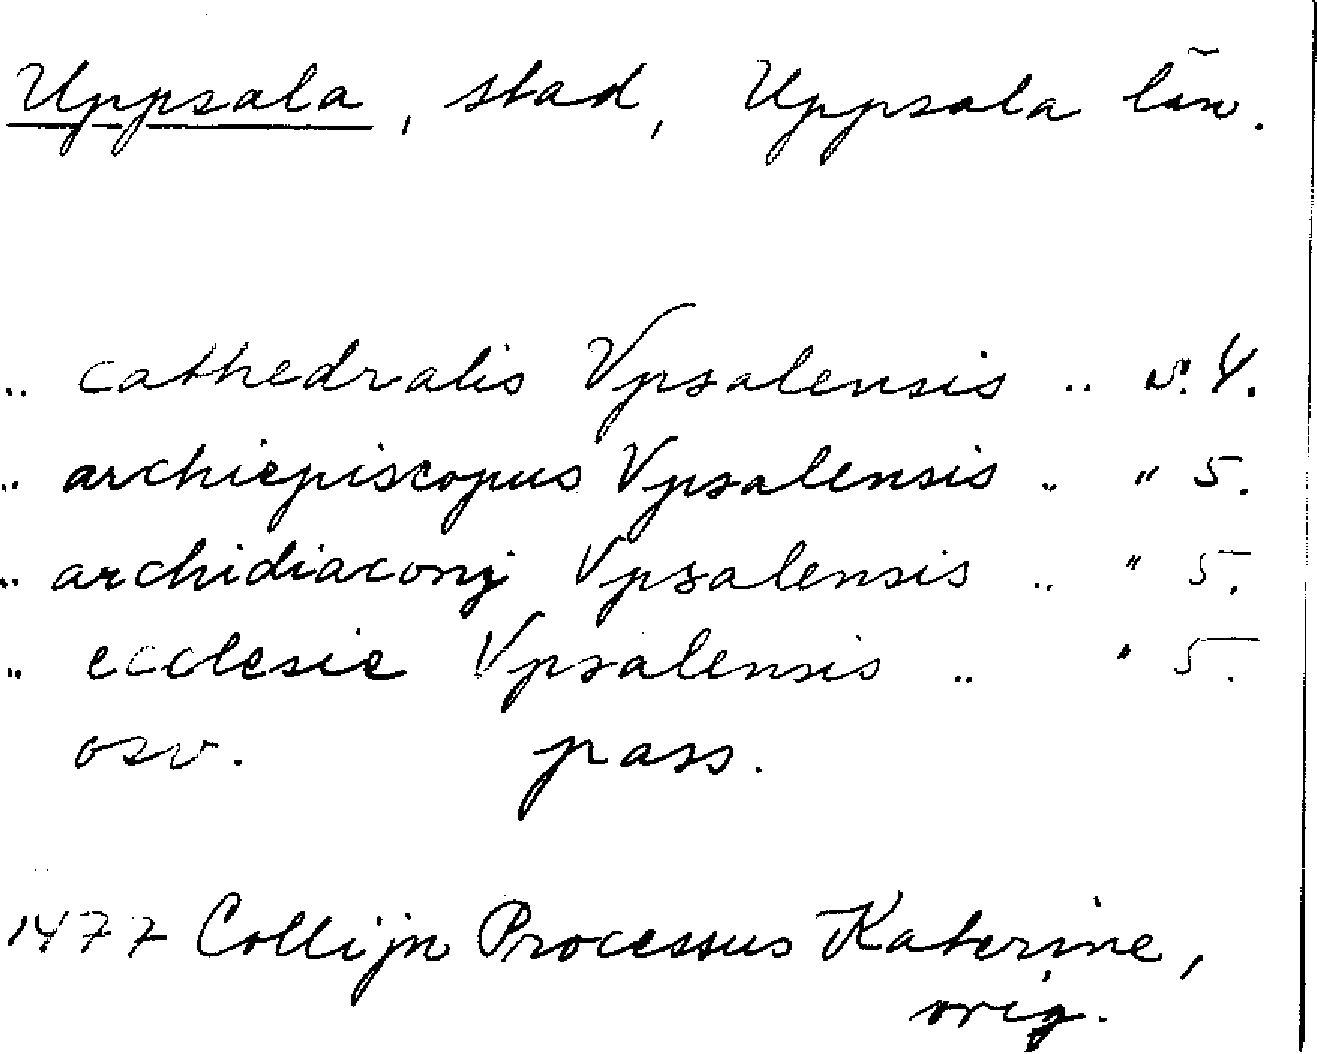 Uppsala, stad, Uppsala län.
.. cathedralis Vpsalensis .. s. 4.
.. archiepiscopus Vpsalensis .. " 5.
.. archidiaconj Vpsalensis .. " 5.
.. ecclesie Vpsalensis .. " 5.
osv. pass.
1477 Collijn Processus Katerine,
orig.